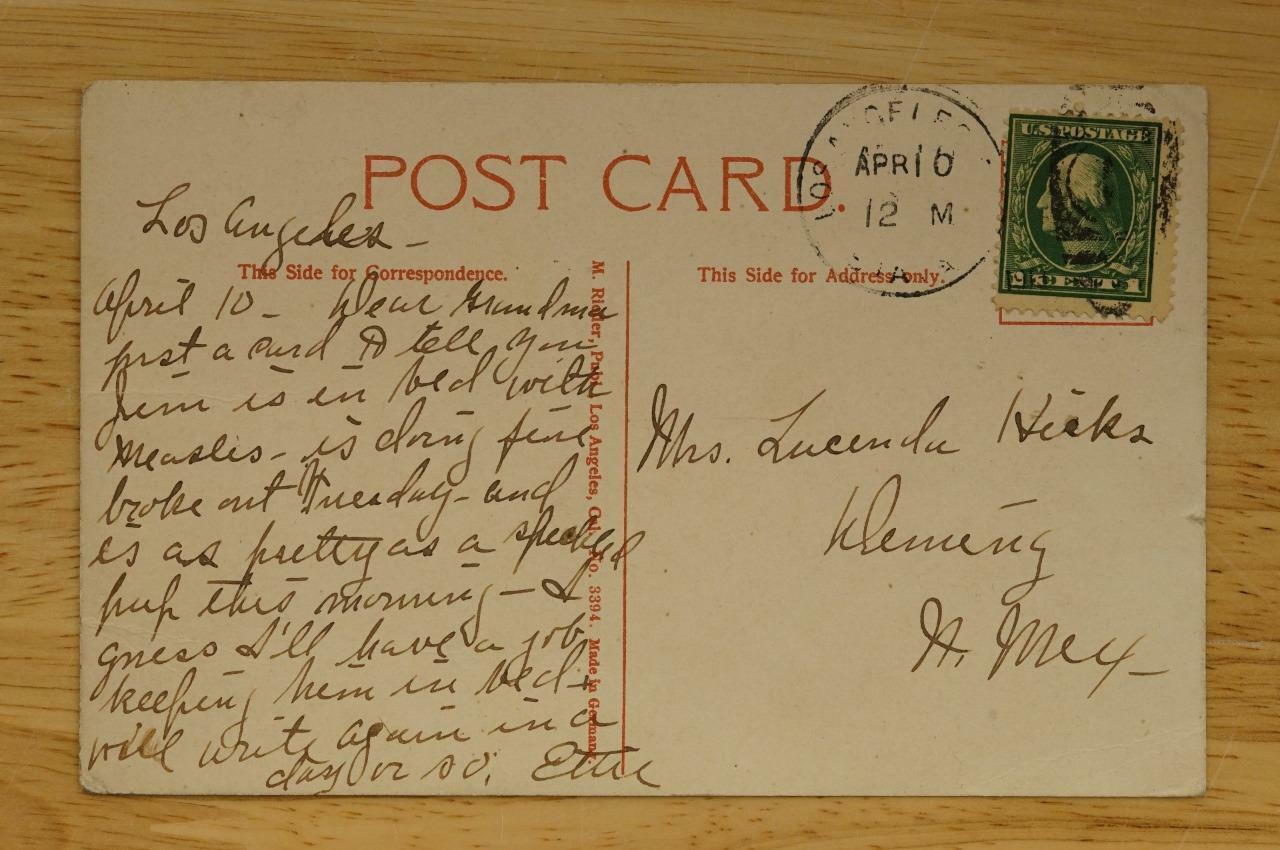 POST CARD.
Los Angeles -
This Side for Correspondence.
April 10 - Dear Grandma
just a card to tell you
Jim is in bed with
measles - is doing fine
broke out Tuesday - and
is as pretty as a speckled
pup this morning - I
guess I'll have a job
keeping him in bed -
will write again in a
day or so. Ettie
M. Rieder, Publ. Los Angeles, Cal. No. 3394. Made in Germany.
This Side for Address only.
LOS ANGELES
APR 10
12 M
U.S. POSTAGE
1 CENT 1
Mrs. Lucenda Hicks
Deming
N. Mex -